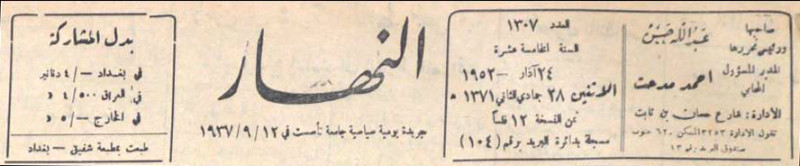 صاحبها
ورئيس تحريرها
عبدالله حسن
المدير المسؤول
المحامي
احمد مدحت
الادارة: شارع حسان بن ثابت
تلفون الادارة ٣٢٥٣ السكن ٦٢٠ جنوب
صندوق البريد رقم ١٣
العدد ١٣٠٧
السنة الخامسة عشرة
٢٤ آذار – ١٩٥٢
الاثنين ٢٨ جمادي الثاني ١٣٧١
ثمن النسخة ١٢ فلسا
مسجلة بدائرة البريد برقم (١٠٤)
النهار
جريدة يومية سياسية جامعة تأسست في ١٢/٩/١٩٣٧
بدل المشاركة
في بغداد –/٤ دنانير
في العراق ٤/٥٠٠ »
في الخارج –/٥ »
طبعت بمطبعة شفيق – بغداد